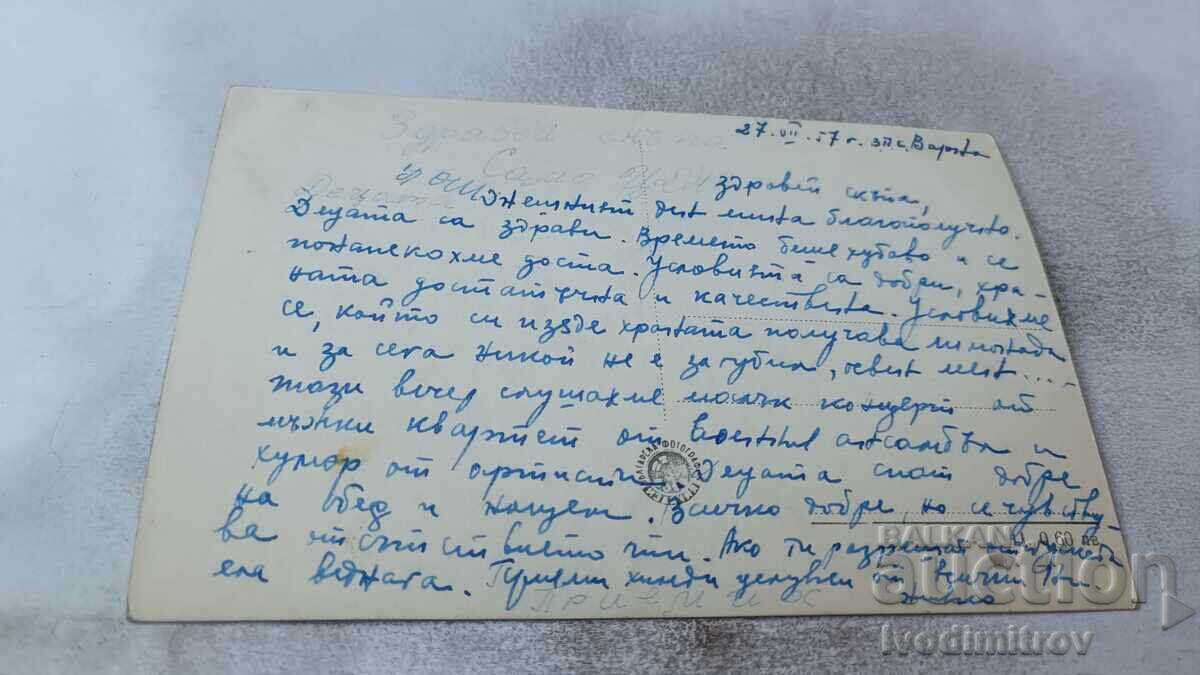 Здравей
27.VII.57 г. зп.с. Варна
Само
Здравей скъпа,
Днешният ден мина благополучно.
Децата са здрави. Времето беше хубаво и се
поналекохме доста. Условията са добри, хра-
ната достатъчна и качествена. Условихме
се, който си изяде храната получава лимонада
и за сега никой не е загубил, освен мен....
тази вечер слушахме малък концерт от
мъжки квартет от Военния ансамбъл и
хумор от артисти. Децата спят добре
на обед и нощем. Всичко добре, но се чувству-
ва отсъствието ти. Ако ти разрешат
ела веднага. Приеми хиляди целувки от всички ни.
приеми
БЪЛГАРСКА ФОТОГРАФИЯ
Ц. 0,60 лв.
BALKAN
auction
Ivodimitrov